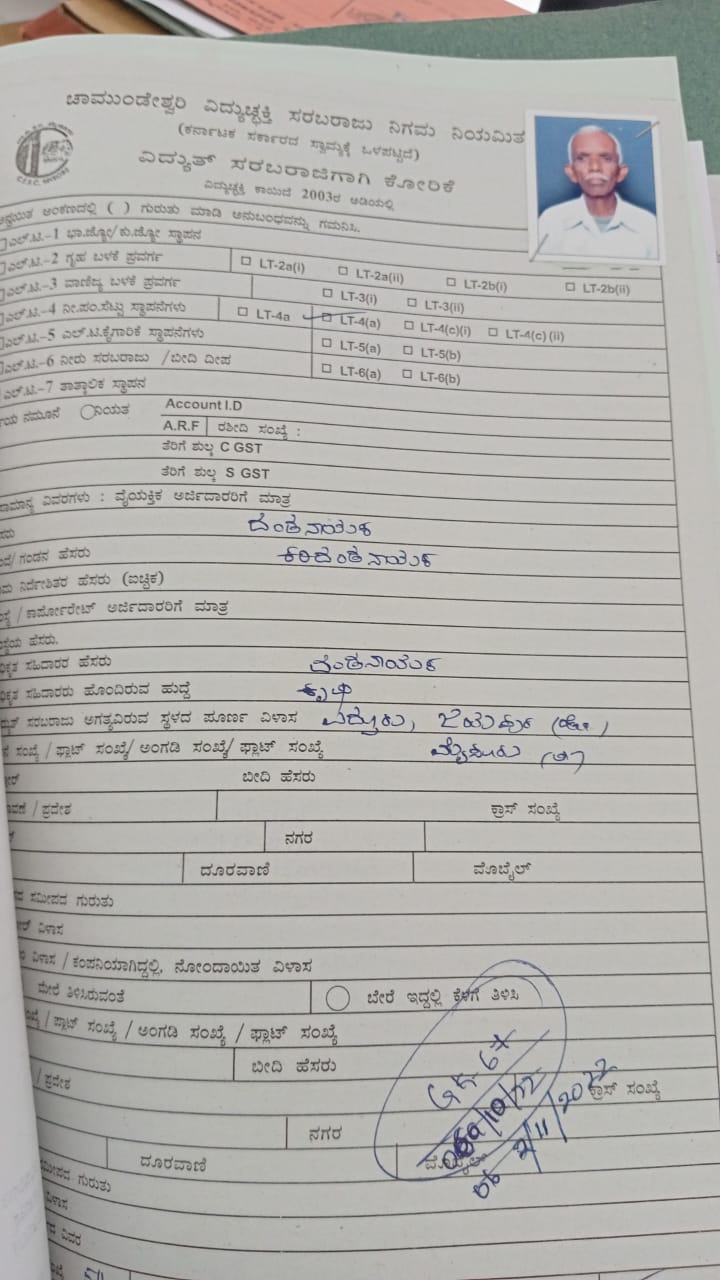 ಚಾಮುಂಡೇಶ್ವರಿ ವಿದ್ಯುಚ್ಛಕ್ತಿ ಸರಬರಾಜು ನಿಗಮ ನಿಯಮಿತ
(ಕರ್ನಾಟಕ ಸರ್ಕಾರದ ಸ್ವಾಮ್ಯಕ್ಕೆ ಒಳಪಟ್ಟಿದೆ)
ವಿದ್ಯುತ್ ಸರಬರಾಜಿಗಾಗಿ ಕೋರಿಕೆ
ವಿದ್ಯುಚ್ಛಕ್ತಿ ಕಾಯಿದೆ 2003ರ ಅಡಿಯಲ್ಲಿ
ಅಂಕಣದಲ್ಲಿ ( ) ಗುರುತು ಮಾಡಿ ಅನುಬಂಧವನ್ನು ಗಮನಿಸಿ.
ಎಲ್.ಟಿ.-1 ಭಾ.ಜ್ಯೋ/ಕು.ಜ್ಯೋ ಸ್ಥಾಪನ
ಎಲ್.ಟಿ.-2 ಗೃಹ ಬಳಕೆ ಪ್ರವರ್ಗ LT-2a(i) LT-2a(ii) LT-2b(i) LT-2b(ii)
ಎಲ್.ಟಿ.-3 ವಾಣಿಜ್ಯ ಬಳಕೆ ಪ್ರವರ್ಗ LT-3(i) LT-3(ii)
ಎಲ್.ಟಿ.-4 ನೀ.ಪಂ.ಸೆಟ್ಟು ಸ್ಥಾಪನೆಗಳು LT-4a LT-4(a) LT-4(c)(i) LT-4(c) (ii)
ಎಲ್.ಟಿ.-5 ಎಲ್.ಟಿ.ಕೈಗಾರಿಕೆ ಸ್ಥಾಪನೆಗಳು LT-5(a) LT-5(b)
ಎಲ್.ಟಿ.-6 ನೀರು ಸರಬರಾಜು /ಬೀದಿ ದೀಪ LT-6(a) LT-6(b)
ಎಲ್.ಟಿ.-7 ತಾತ್ಕಾಲಿಕ ಸ್ಥಾಪನ
ನಮೂನೆ ನಿಯತ Account I.D
A.R.F ರಶೀದಿ ಸಂಖ್ಯೆ :
ತೆರಿಗೆ ಶುಲ್ಕ C GST
ತೆರಿಗೆ ಶುಲ್ಕ S GST
ಸಾಮಾನ್ಯ ವಿವರಗಳು : ವೈಯಕ್ತಿಕ ಅರ್ಜಿದಾರರಿಗೆ ಮಾತ್ರ
ದಂಡನಾಯಕ
ಗಂಡನ ಹೆಸರು ಕರಿದಂಡನಾಯಕ
ನಿರ್ದೇಶಿತರ ಹೆಸರು (ಐಚ್ಛಿಕ)
/ ಕಾರ್ಪೋರೇಟ್ ಅರ್ಜಿದಾರರಿಗೆ ಮಾತ್ರ
ಹೆಸರು.
ಸಹಿದಾರರ ಹೆಸರು ದಂಡನಾಯಕ
ಸಹಿದಾರರು ಹೊಂದಿರುವ ಹುದ್ದೆ ಕೃಷಿ
ಸರಬರಾಜು ಅಗತ್ಯವಿರುವ ಸ್ಥಳದ ಪೂರ್ಣ ವಿಳಾಸ
ಸಂಖ್ಯೆ / ಫ್ಲಾಟ್ ಸಂಖ್ಯೆ/ ಅಂಗಡಿ ಸಂಖ್ಯೆ/ ಫ್ಲಾಟ್ ಸಂಖ್ಯೆ ಮೈಸೂರು (ತಾ)
ಬೀದಿ ಹೆಸರು
/ ಪ್ರದೇಶ ಕ್ರಾಸ್ ಸಂಖ್ಯೆ
ನಗರ
ದೂರವಾಣಿ ಮೊಬೈಲ್
ಸಮೀಪದ ಗುರುತು
ವಿಳಾಸ
ವಿಳಾಸ / ಕಂಪನಿಯಾಗಿದ್ದಲ್ಲಿ, ನೋಂದಾಯಿತ ವಿಳಾಸ
ಮೇಲೆ ತಿಳಿಸಿರುವಂತೆ ಬೇರೆ ಇದ್ದಲ್ಲಿ ಕೆಳಗೆ ತಿಳಿಸಿ
/ ಪ್ಲಾಟ್ ಸಂಖ್ಯೆ / ಅಂಗಡಿ ಸಂಖ್ಯೆ / ಫ್ಲಾಟ್ ಸಂಖ್ಯೆ
ಬೀದಿ ಹೆಸರು
/ ಪ್ರದೇಶ ಕ್ರಾಸ್ ಸಂಖ್ಯೆ
ನಗರ
ದೂರವಾಣಿ ಮೊಬೈಲ್
ಗುರುತು
ವಿಳಾಸ
ವಿವರ